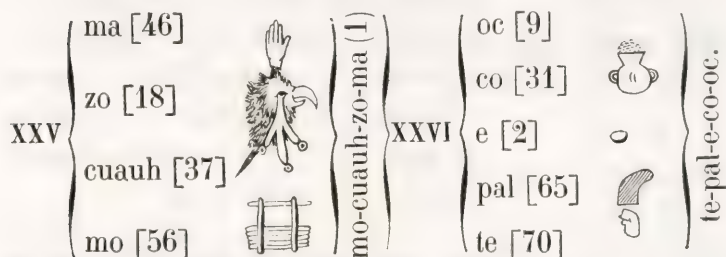 XXV
ma [46]
zo [18]
cuauh [37]
mo [56]
mo-cuauh-zo-ma (1)
XXVI
oc [9]
co [31]
e [2]
pal [65]
te [70]
te-pal-e-co-oc.